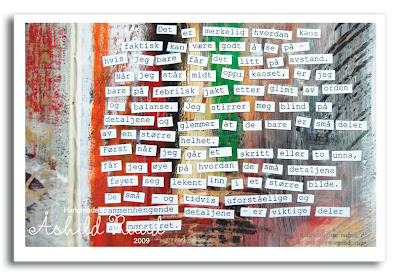 Det er merkelig hvordan kaos
faktisk kan være godt å se på -
hvis jeg bare får det litt på avstand.
Når jeg står midt oppi kaoset, er jeg
bare på febrilsk jakt etter glimt av orden
og balanse. Jeg stirrer meg blind på
detaljene og glemmer at de bare er små deler
av en større helhet.
Først når jeg går et skritt eller to unna,
får jeg øye på hvordan de små detaljene
føyer seg lekent inn i et større bilde.
De små - og tidvis uforståelige og
sammenhengende detaljene - er viktige deler
av mønstret.
Handmade
Åshild
2009